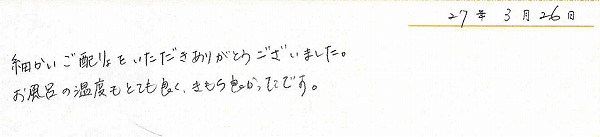 27年 3月 26日
細かいご配りょをいただきありがとうございました。
お風呂の温度もとても良く、きもち良かったです。